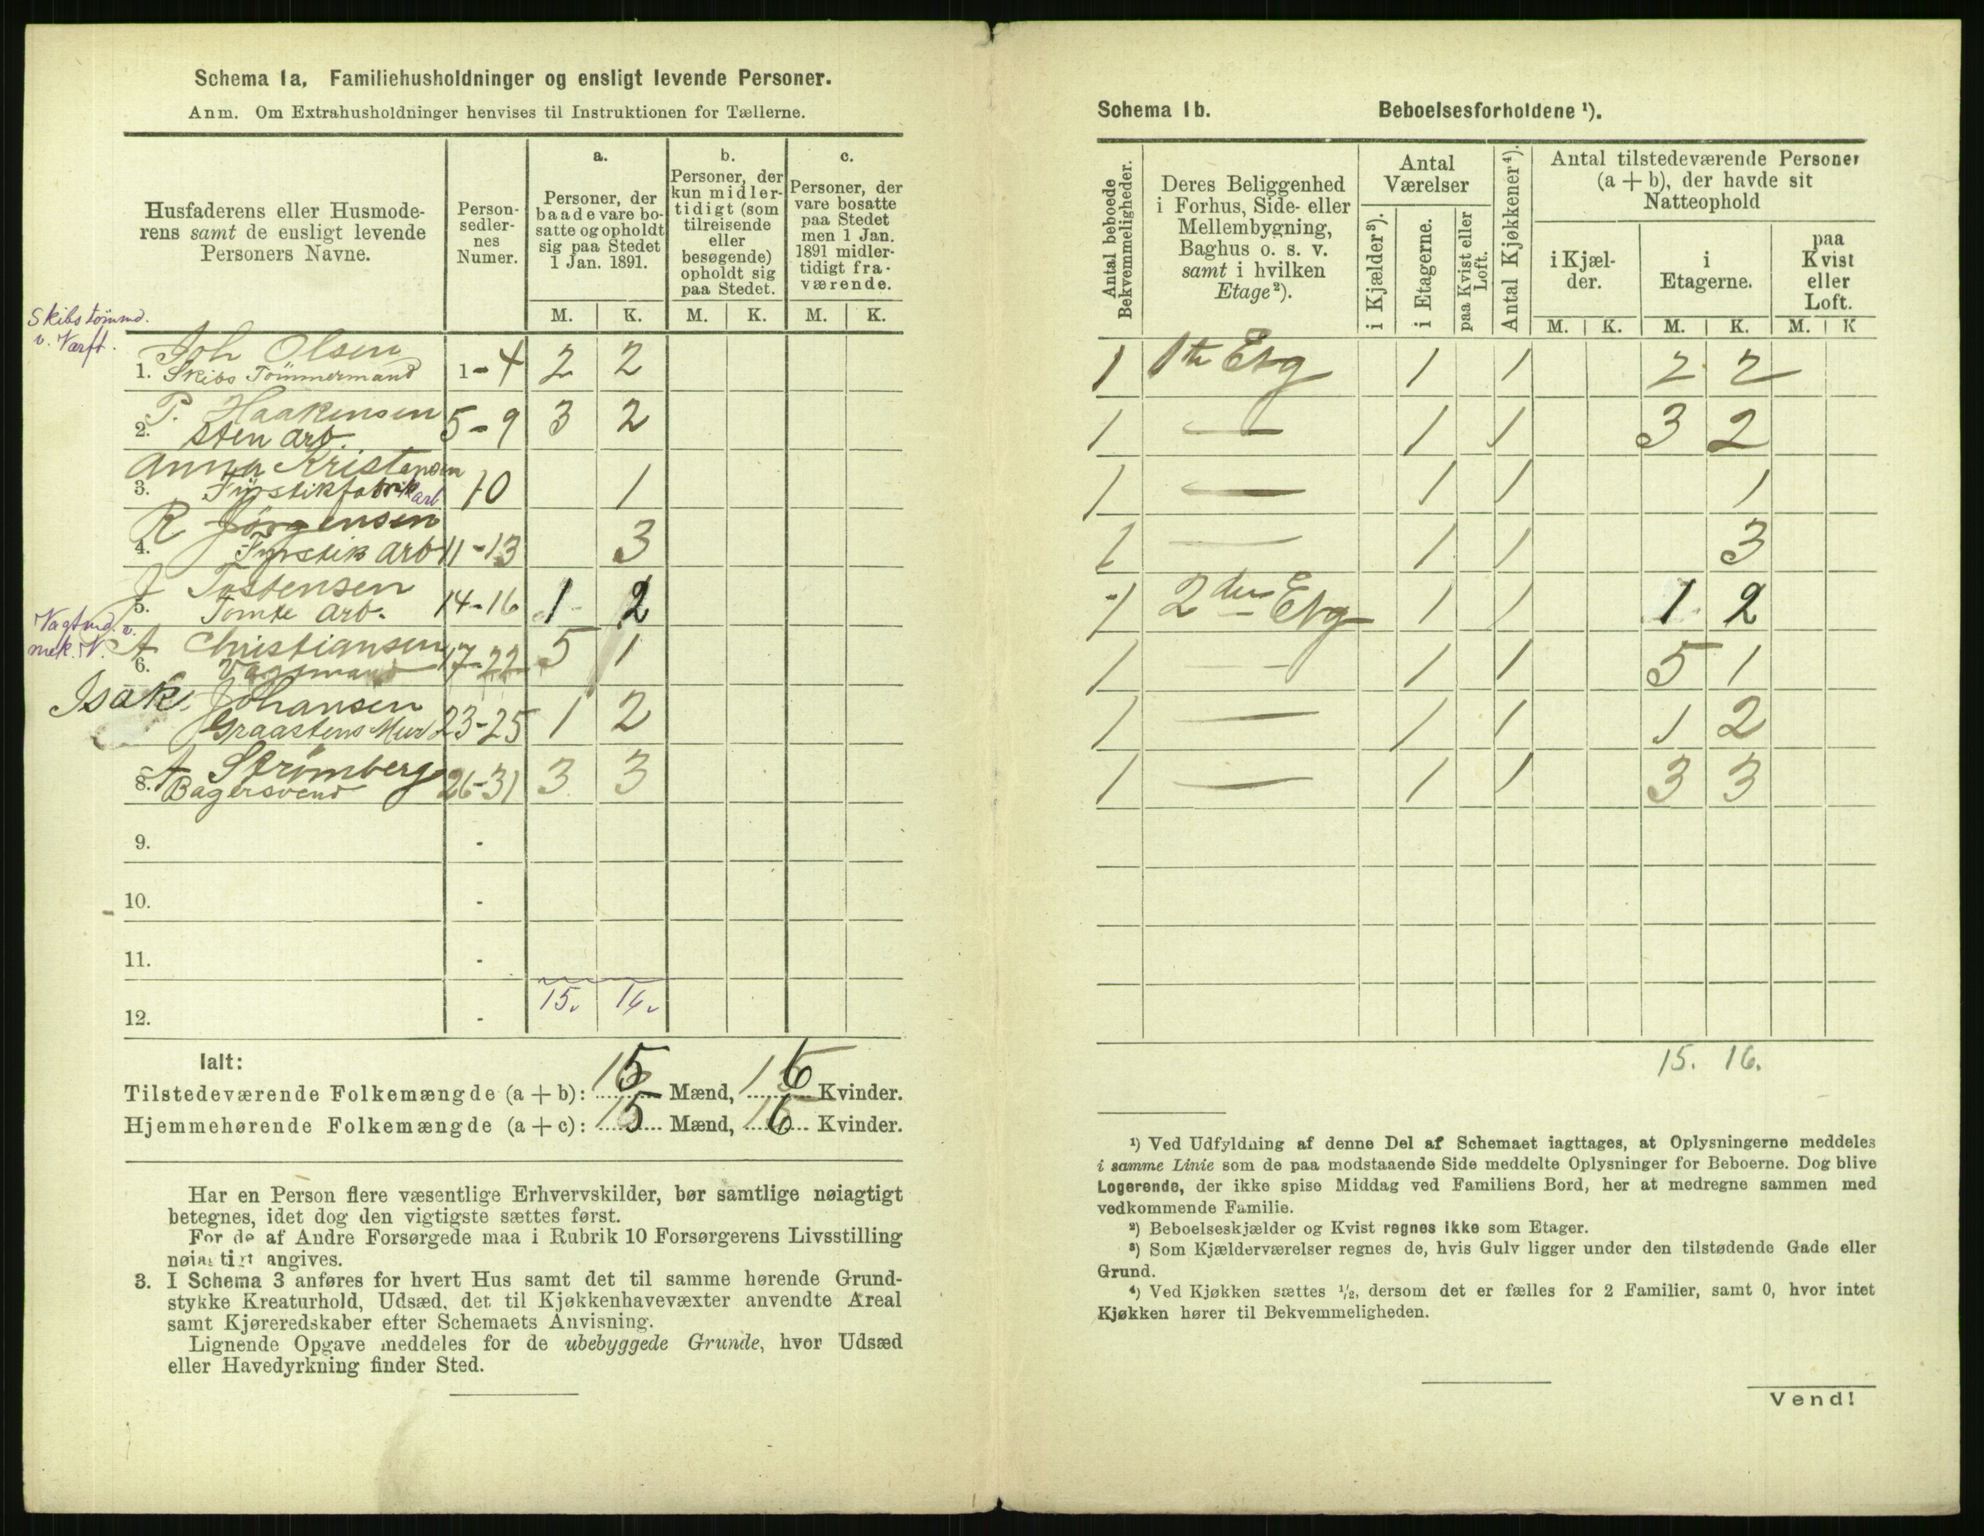 Schema 1a, Familiehusholdninger og ensligt levende Personer.
Anm. Om Extrahusholdninger henvises til Instruktionen for Tællerne.
Husfaderens eller Husmode-
rens samt de ensligt levende
Personers Navne.
Person-
sedler-
nes
Numer.
a.
Personer, der
baade vare bo-
satte og opholdt
sig paa Stedet
1 Jan. 1891.
b.
Personer, der
kun midler-
tidigt (som
tilreisende
eller
besøgende)
opholdt sig
paa Stedet.
c.
Personer, der
vare bosatte
paa Stedet
men 1 Jan.
1891 midler-
tidigt fra-
værende.
M. K. M. K. M. K.
Skibstømmd.
v. Værft.
Joh Olsen
1. Skibs Tømmermand 1-4 2 2
P. Haakensen
2. Sten arb. 5-9 3 2
Anna Kristensen
3. Fyrstikfabrik arb 10 1
R Jørgensen
4. Fyrstik arb 11-13 3
J Tostensen
5. Tomte arb. 14-16 1 2
Vagtmd. v.
mek. V.
A Christiansen
6. Vagtmand 17-22 5 1
Isak Johansen
Graastens Mur 23-25 1 2
A Strømberg
8. Bagersvend 26-31 3 3
9. -
10. -
11. -
12. - 15. 16.
Ialt:
Tilstedeværende Folkemængde (a + b): 15 Mænd, 16 Kvinder.
Hjemmehørende Folkemængde (a + c): 15 Mænd, 16 Kvinder.
Har en Person flere væsentlige Erhvervskilder, bør samtlige nøiagtigt
betegnes, idet dog den vigtigste sættes først.
For de af Andre Forsørgede maa i Rubrik 10 Forsørgerens Livsstilling
nøiagtigt angives.
3. I Schema 3 anføres for hvert Hus samt det til samme hørende Grund-
stykke Kreaturhold, Udsæd, det til Kjøkkenhavevæxter anvendte Areal
samt Kjøreredskaber efter Schemaets Anvisning.
Lignende Opgave meddeles for de ubebyggede Grunde, hvor Udsæd
eller Havedyrkning finder Sted.
Schema 1b. Beboelsesforholdene ¹).
Antal beboede
Bekvemmeligheder.
Deres Beliggenhed
i Forhus, Side- eller
Mellembygning,
Baghus o. s. v.
samt i hvilken
Etage²).
Antal
Værelser
i Kjælder³).
i Etagerne.
paa Kvist eller
Loft.
Antal Kjøkkener⁴).
Antal tilstedeværende Personer
(a + b), der havde sit
Natteophold
i Kjæl-
der.
i
Etagerne.
paa
Kvist
eller
Loft.
M. K. M. K. M. K
1 1te Etg 1 1 2 2
1 — 1 1 3 2
1 — 1 1 1
1 — 1 1 3
1 2den Etg 1 1 1 2
1 - 1 1 5 1
1 — 1 1 1 2
1 — 1 1 3 3
15. 16.
¹) Ved Udfyldning af denne Del af Schemaet iagttages, at Oplysningerne meddeles
i samme Linie som de paa modstaaende Side meddelte Oplysninger for Beboerne. Dog blive
Logerende, der ikke spise Middag ved Familiens Bord, her at medregne sammen med
vedkommende Familie.
²) Beboelseskjælder og Kvist regnes ikke som Etager.
³) Som Kjælderværelser regnes de, hvis Gulv ligger under den tilstødende Gade eller
Grund.
⁴) Ved Kjøkken sættes ½, dersom det er fælles for 2 Familier, samt 0, hvor intet
Kjøkken hører til Bekvemmeligheden.
Vend!